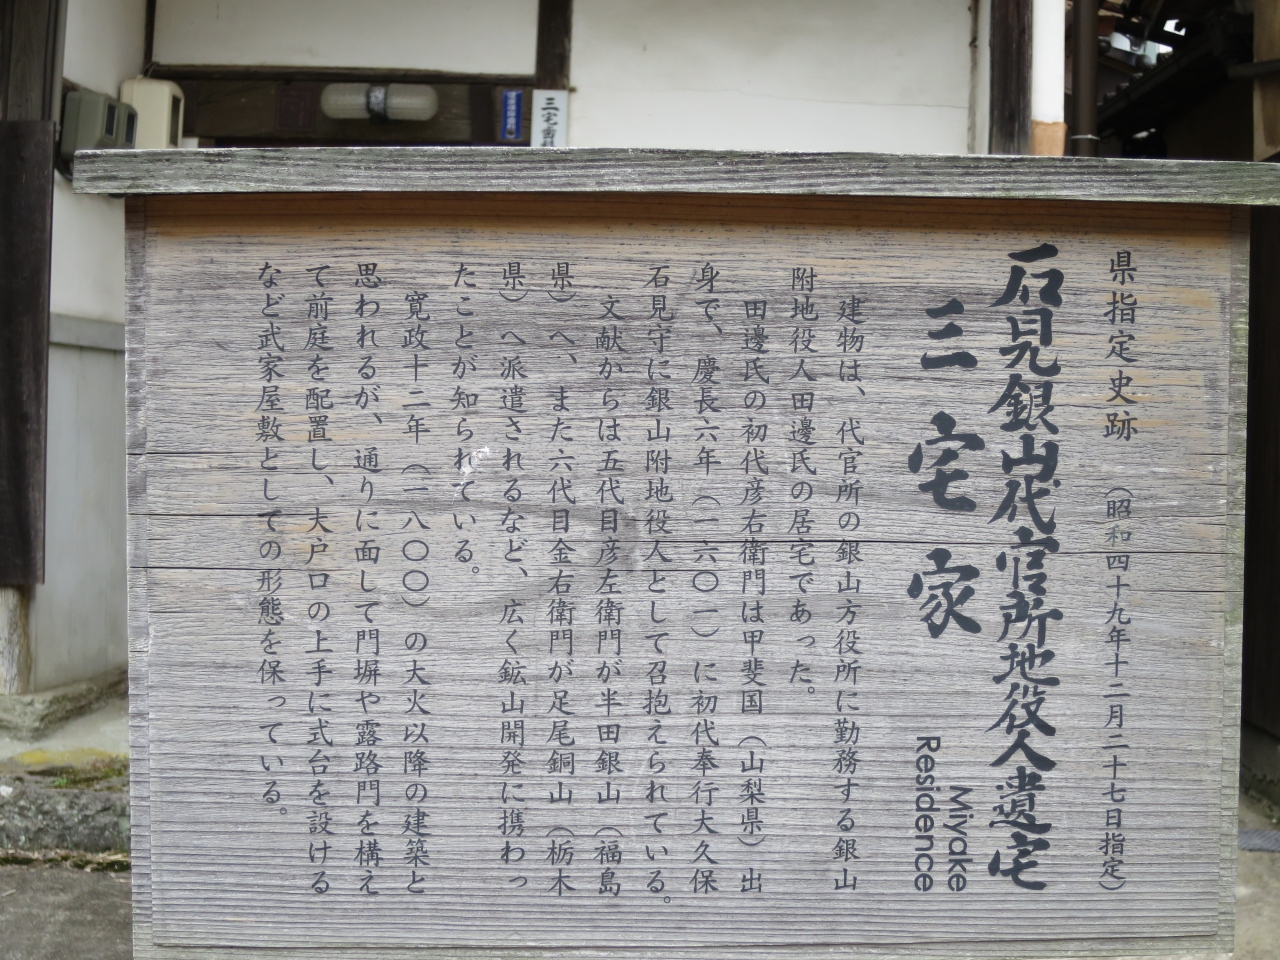 県指定史跡 （昭和四十九年十二月二十七日指定）
石見銀山代官所地役人遺宅
三宅家
Miyake
Residence
建物は、代官所の銀山方役所に勤務する銀山
附地役人田邊氏の居宅であった。
田邊氏の初代彦右衛門は甲斐国（山梨県）出
身で、慶長六年（一六〇一）に初代奉行大久保
石見守に銀山附地役人として召抱えられている。
文献からは五代目彦左衛門が半田銀山（福島
県）へ、また六代目金右衛門が足尾銅山（栃木
県）へ派遣されるなど、広く鉱山開発に携わっ
たことが知られている。
寛政十二年（一八〇〇）の大火以降の建築と
思われるが、通りに面して門塀や露路門を構え
て前庭を配置し、大戸口の上手に式台を設ける
など武家屋敷としての形態を保っている。
三宅